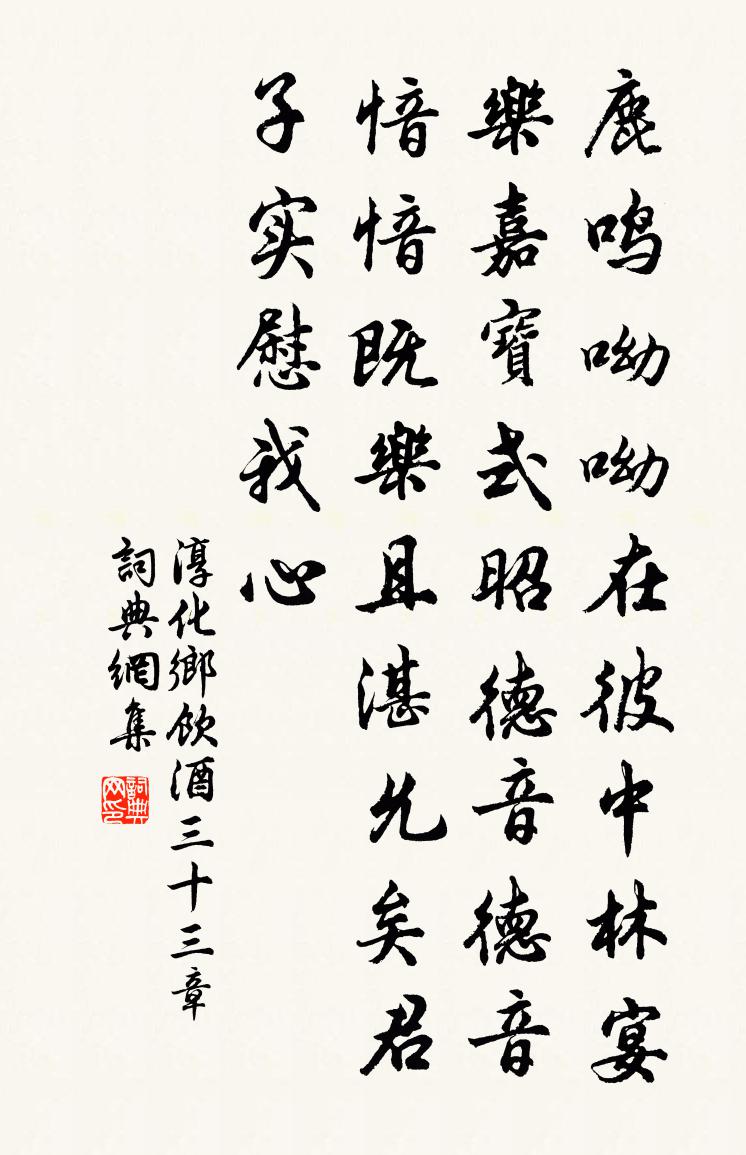 鹿鸣呦呦在彼中林宴
樂嘉寶式昭德音德音
愔愔既樂且湛允矣君
子实慰我心
淳化鄉飲酒三十三章
詞典網集
詞典网印